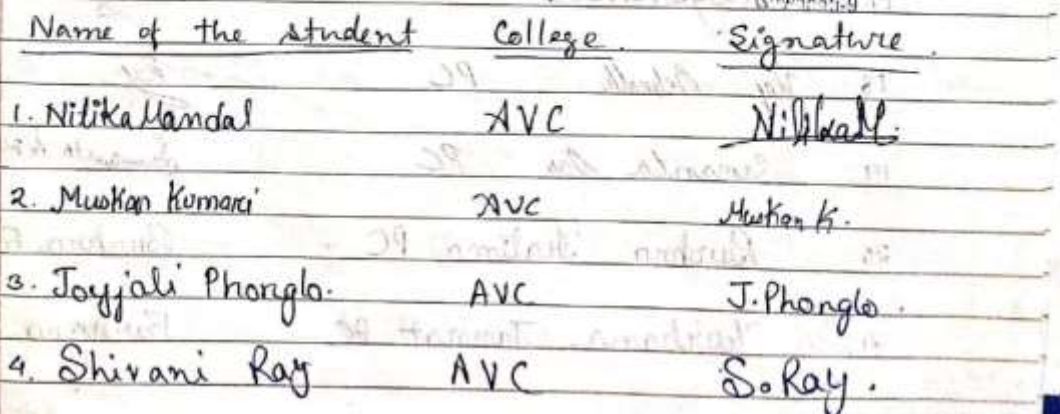 Name of the student College. Signature.
1. Nitika Mandal AVC Nitika M.
2. Muskan Kumari AVC Muskan K.
3. Joyjali Phonglo. AVC J. Phonglo.
4. Shivani Ray AVC S. Ray.